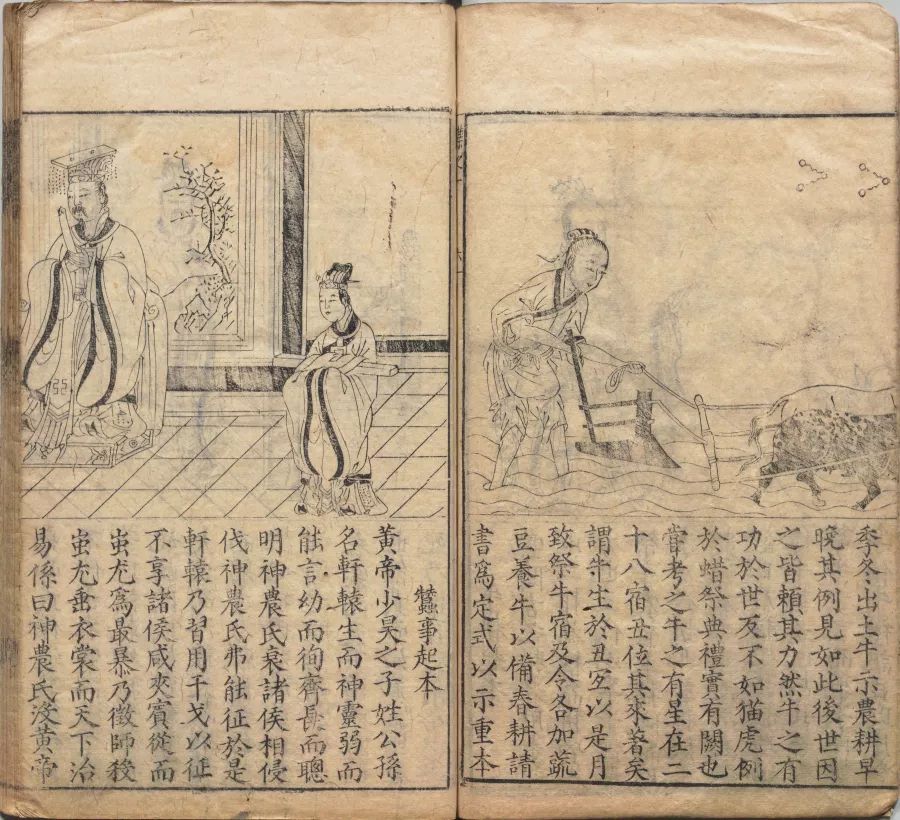 季冬出土牛示農耕早
晚其例見如此後世因
之皆賴其力然牛之有
功於世反不如猫虎例
於蜡祭典禮實有闕也
嘗考之牛之有星在二
十八宿丑位其來著矣
謂牛生於丑宜以是月
致祭牛宿及令各加蔬
豆養牛以備春耕請
書爲定式以示重本
蠶事起本
黃帝少昊之子姓公孫
名軒轅生而神靈弱而
能言幼而徇齊長而聰
明神農氏衰諸侯相侵
伐神農氏弗能征於是
軒轅乃習用干戈以征
不享諸侯咸來賓從而
蚩尤爲最暴乃徵師殺
蚩尤垂衣裳而天下治
易係曰神農氏沒黃帝